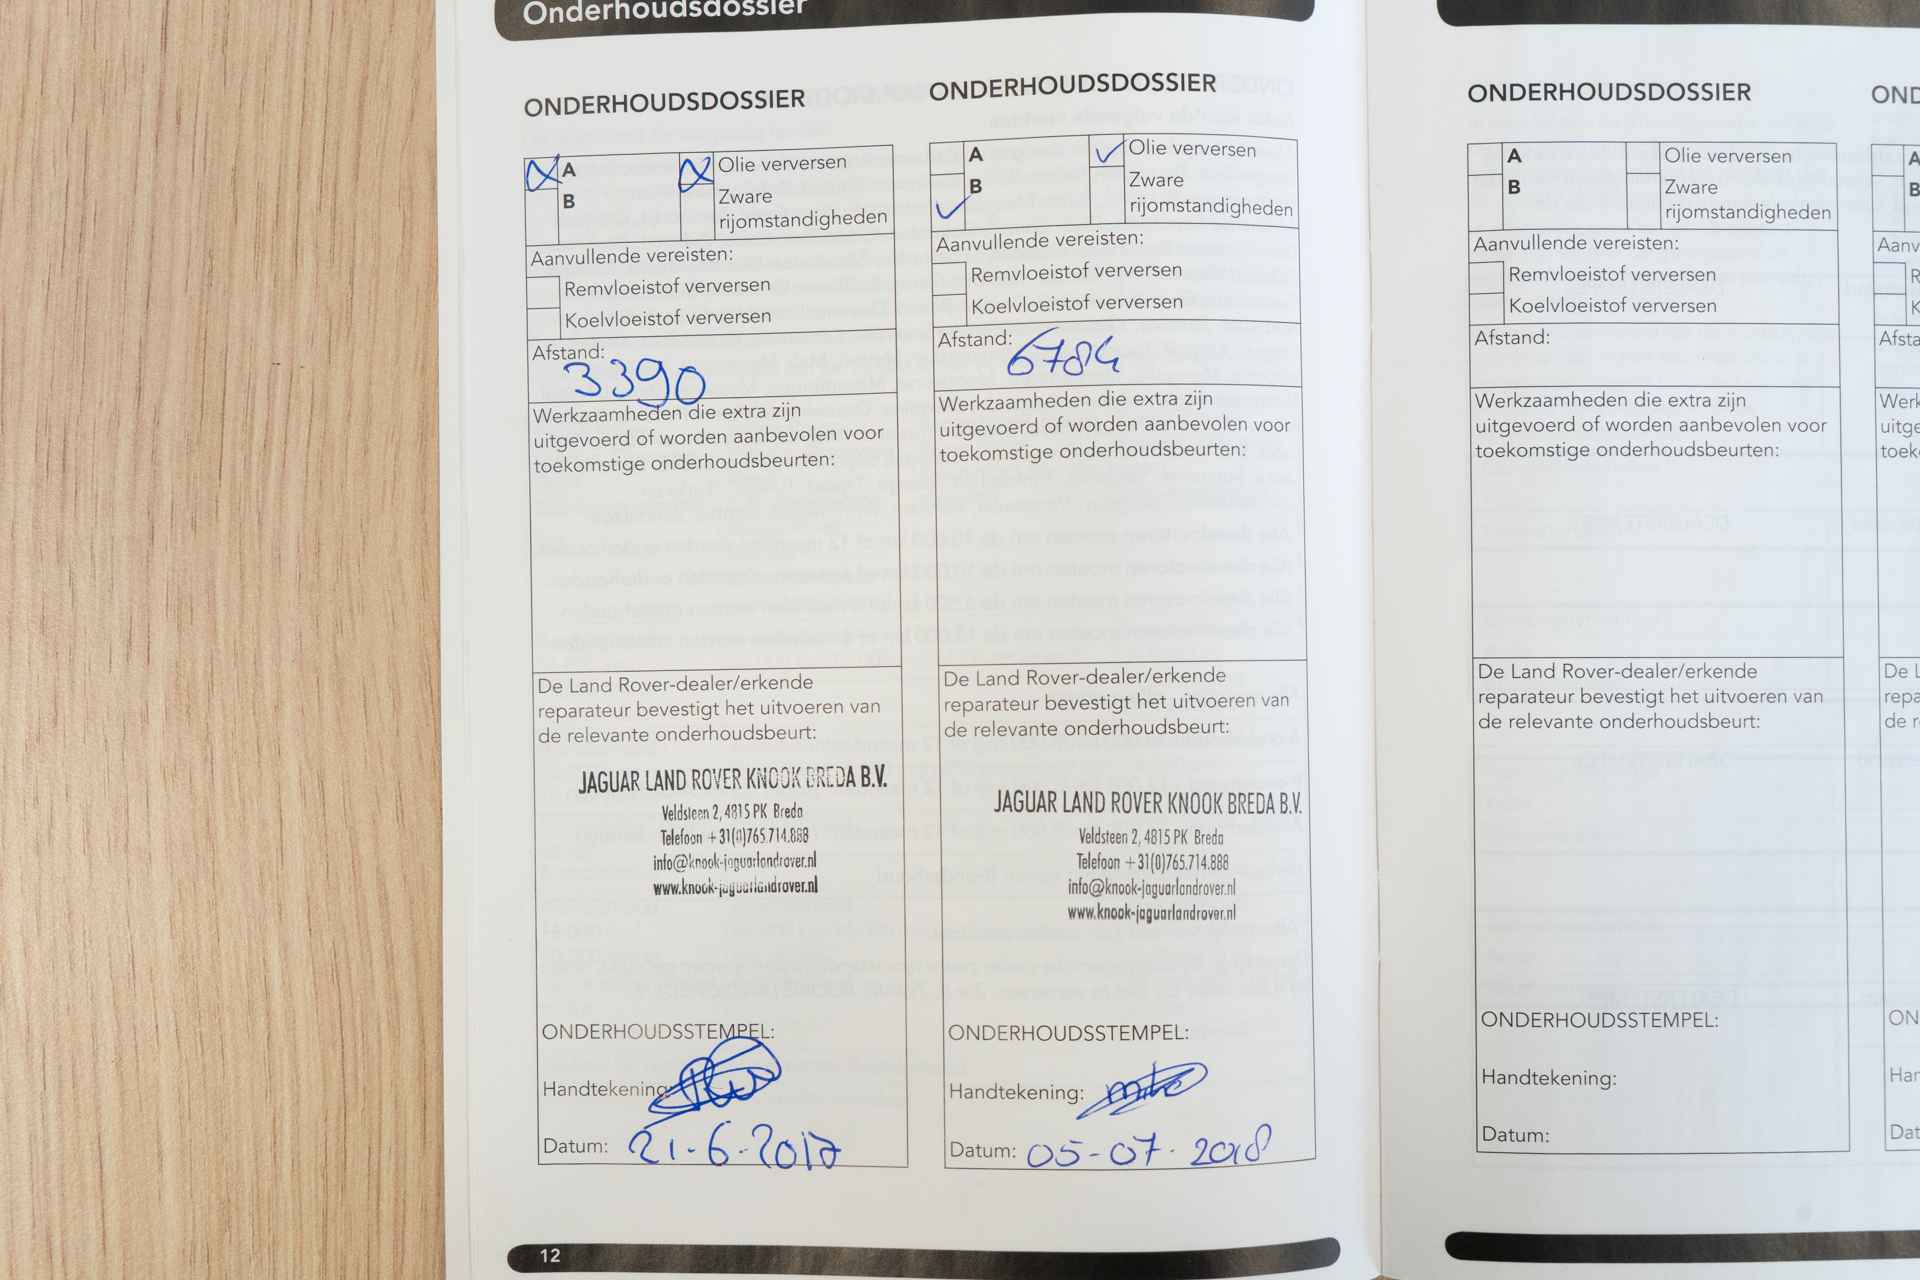 Onderhoudsdossier
ONDERHOUDSDOSSIER
A
Olie verversen
B
Zware
rijomstandigheden
Aanvullende vereisten:
Remvloeistof verversen
Koelvloeistof verversen
Afstand:
3390
Werkzaamheden die extra zijn
uitgevoerd of worden aanbevolen voor
toekomstige onderhoudsbeurten:
De Land Rover-dealer/erkende
reparateur bevestigt het uitvoeren van
de relevante onderhoudsbeurt:
JAGUAR LAND ROVER KNOOK BREDA B.V.
Veldsteen 2, 4815 PK Breda
Telefoon +31(0)765.714.888
info@knook-jaguarlandrover.nl
www.knook-jaguarlandrover.nl
ONDERHOUDSSTEMPEL:
Handtekening:
Datum: 21-6-2017
12
ONDERHOUDSDOSSIER
A
Olie verversen
B
Zware
rijomstandigheden
Aanvullende vereisten:
Remvloeistof verversen
Koelvloeistof verversen
Afstand:
6784
Werkzaamheden die extra zijn
uitgevoerd of worden aanbevolen voor
toekomstige onderhoudsbeurten:
De Land Rover-dealer/erkende
reparateur bevestigt het uitvoeren van
de relevante onderhoudsbeurt:
JAGUAR LAND ROVER KNOOK BREDA B.V.
Veldsteen 2, 4815 PK Breda
Telefoon +31(0)765.714.888
info@knook-jaguarlandrover.nl
www.knook-jaguarlandrover.nl
ONDERHOUDSSTEMPEL:
Handtekening:
Datum: 05-07-2018
ONDERHOUDSDOSSIER
A
Olie verversen
B
Zware
rijomstandigheden
Aanvullende vereisten:
Remvloeistof verversen
Koelvloeistof verversen
Afstand:
Werkzaamheden die extra zijn
uitgevoerd of worden aanbevolen voor
toekomstige onderhoudsbeurten:
De Land Rover-dealer/erkende
reparateur bevestigt het uitvoeren van
de relevante onderhoudsbeurt:
ONDERHOUDSSTEMPEL:
Handtekening:
Datum:
A
B